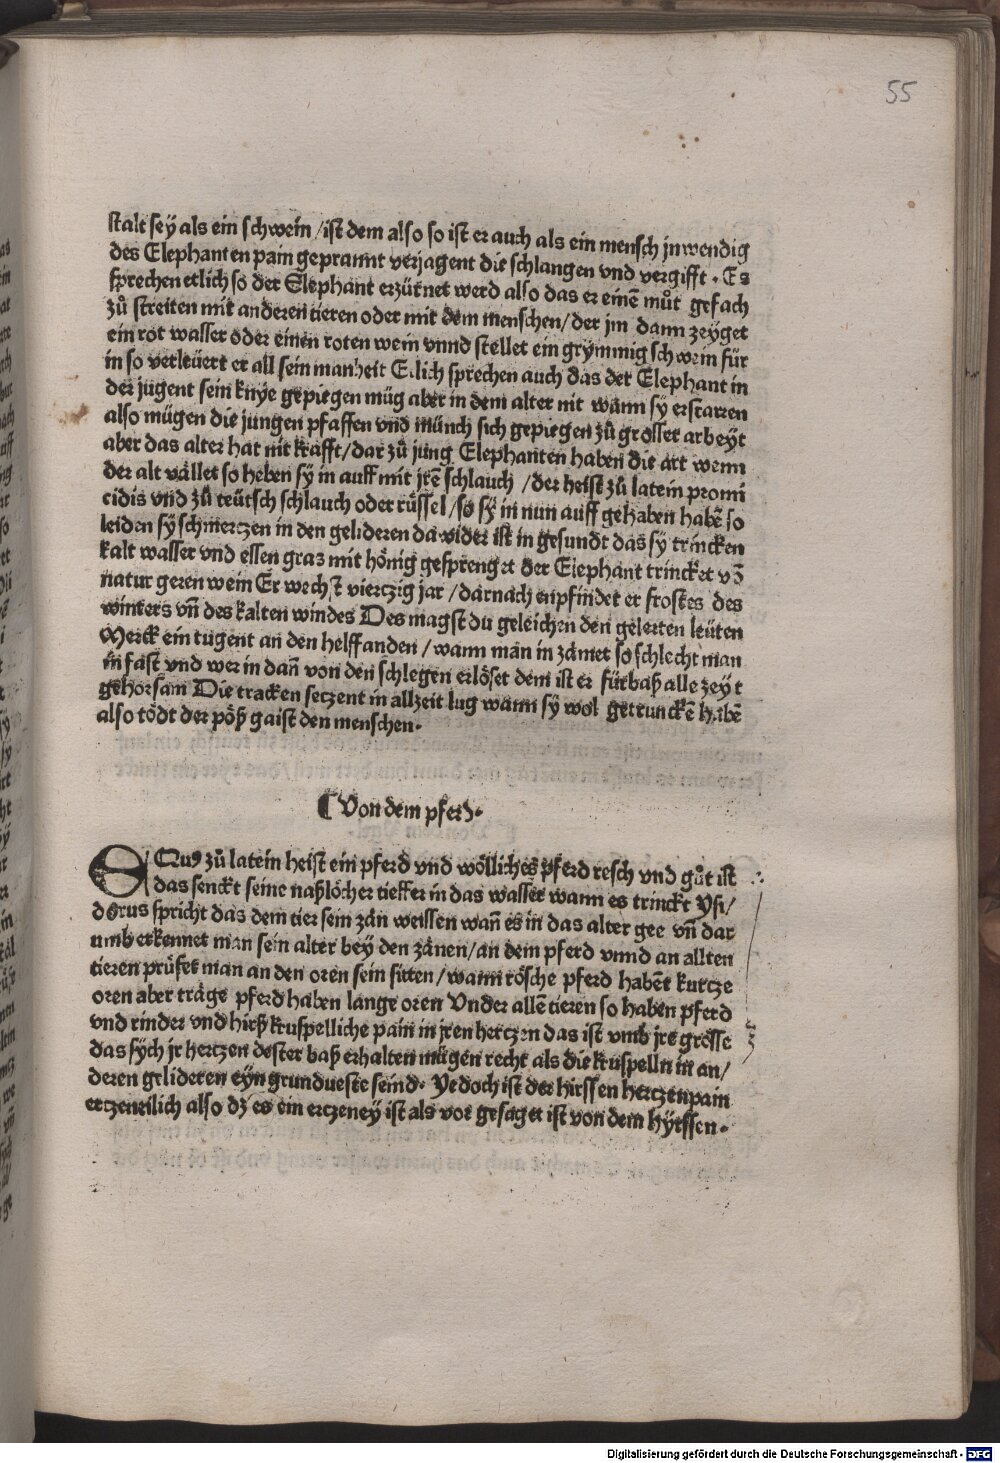 55
stalt seÿ als ein schwein / ist dem also so ist er auch als ein mensch jnwendig
des Elephanten pain geprannt verjagent die schlangen vnd vergifft . Es
sprechen etlich so der Elephant erzürnet werd also das er einē můt gefach
zů streiten mit anderen tieren oder mit dem menschen / der jm dann zeyget
ein rot wasser oder einen roten wein vnnd stellet ein grymmig schwein für
in so verleüert er all sein manheit Etlich sprechen auch das der Elephant in
der jugent sein knye gepiegen müg aber in dem alter nit wann sy erstarren
also mügen die jungen pfaffen vnd münch sich gepiegen zů grosser arbeyt
aber das alter hat nit krafft / dar zů jung Elephanten haben die art wenn
der alt vället so heben sÿ in auff mit jrē schlauch / der heist zů latein promi
cidis vnd zů teütsch schlauch oder rüssel / so sÿ in nun auff gehaben habē so
leiden sÿ schmertzen in den gelideren da wider ist in gesundt das sÿ trincken
kalt wasser vnd essen gras mit hönig gesprenget der Elephant trincket vō
natur geren wein Er wechst viertzig jar / darnach enpfindet er frostes des
winters vn̄ des kalten windes Des magst du geleichen den gelerten leüten
Merck ein tugent an den helffanden / wann man in zämet so schlecht man
in fast vnd wer in dan̄ von den schlegen erlöset dem ist er fürbaß alle zeyt
gehorsam Die tracken setzent in allzeit lug wann sÿ wol getrunckē habē
also tödt der pöß gaist den menschen .
¶ Von dem pferd .
EQuꝰ zů latein heist ein pferd vnd wölliches pferd resch vnd gůt ist
das senckt seine naßlöcher tieffer in das wasser wann es trinckt Ysi /
dorus spricht das dem tier sein zän weissen wan̄ es in das alter gee vn̄ dar
umb erkennet man sein alter bey den zänen / an dem pferd vnnd an allten
tieren prüfet man an den oren sein sitten / wann rösche pferd habent kurtze
oren aber träge pferd haben lange oren Vnder allē tieren so haben pferd
vnd rinder vnd hirß kruspelliche pain in jren hertzen das ist vmb jre grosse
das sÿch jr hertzen dester baß erhalten mügen recht als die kruspelln in an /
deren gelideren eyn grundueste seind . Yedoch ist der hirssen hertzenpain
ertzeneilich also dz es ein ertzeney ist als vor gesaget ist von dem hÿrssen .
Digitalisierung gefördert durch die Deutsche Forschungsgemeinschaft - DFG